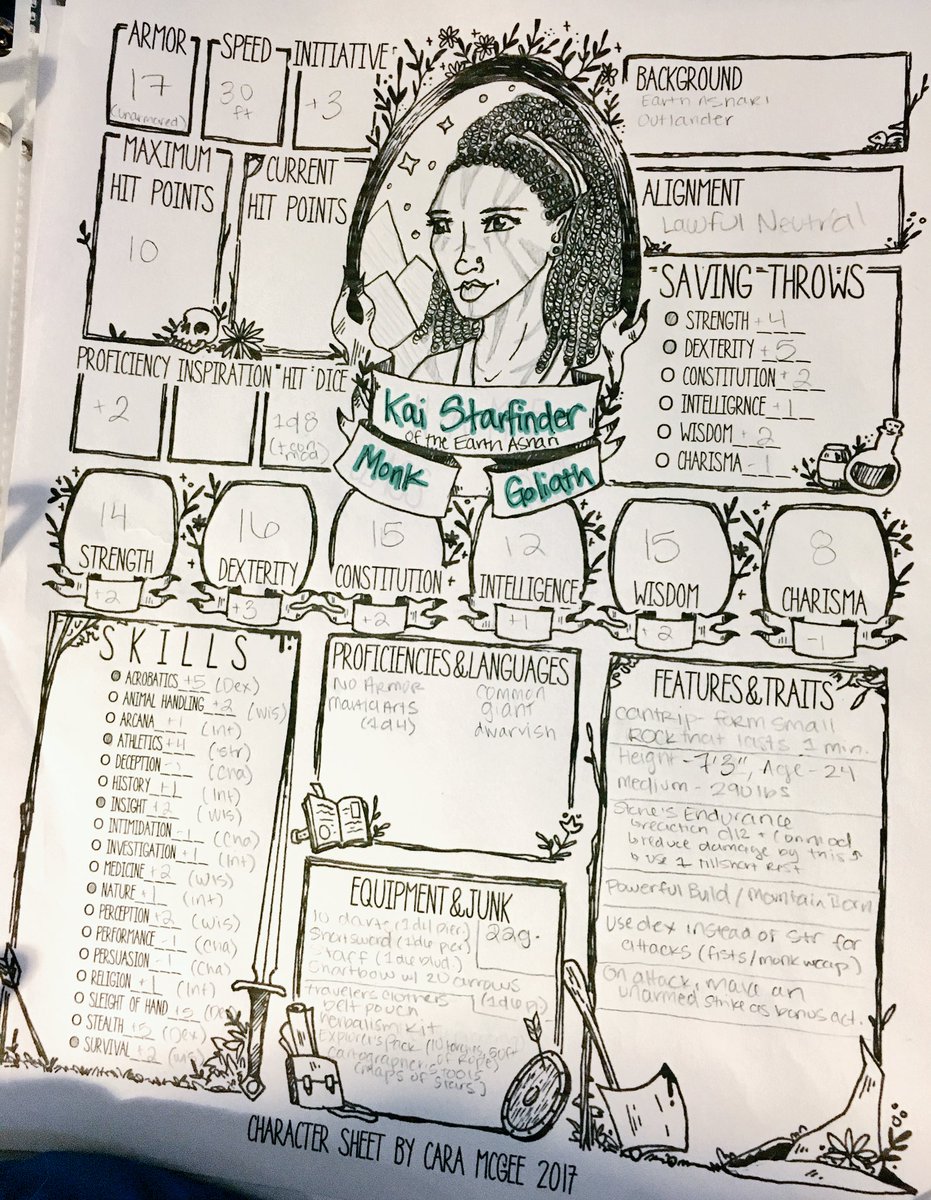 ARMOR
17
(unarmored)
SPEED
30
ft
INITIATIVE
+3
BACKGROUND
Earth Ashari
Outlander
MAXIMUM
HIT POINTS
10
CURRENT
HIT POINTS
ALIGNMENT
Lawful Neutral
SAVING THROWS
STRENGTH +4
DEXTERITY +5
CONSTITUTION +2
INTELIGRNCE +1
WISDOM +2
CHARISMA -1
PROFICIENCY INSPIRATION HIT DICE
+2
1d8
(+con
mod)
Kai Starfinder
of the Earth Ashari
Monk
Goliath
14
STRENGTH
+2
16
DEXTERITY
+3
15
CONSTITUTION
+2
12
INTELLIGENCE
+1
15
WISDOM
+2
8
CHARISMA
-1
SKILLS
ACROBATICS +5 (Dex)
ANIMAL HANDLING +2 (Wis)
ARCANA +1 (Int)
ATHLETICS +4 (Str)
DECEPTION -1 (Cha)
HISTORY +1 (Int)
INSIGHT +2 (Wis)
INTIMIDATION -1 (Cha)
INVESTIGATION +1 (Int)
MEDICINE +2 (Wis)
NATURE +1 (Int)
PERCEPTION +2 (Wis)
PERFORMANCE -1 (Cha)
PERSUASION -1 (Cha)
RELIGION +1 (Int)
SLEIGHT OF HAND +5 (Dex)
STEALTH +5 (Dex)
SURVIVAL +2 (Wis)
PROFICIENCIES & LANGUAGES
No Armor
Martial Arts
(1d4)
common
giant
dwarvish
EQUIPMENT & JUNK
22g.
10 darts (1d4 pier)
Shortsword (1d6 pier)
Staff (1d6 blud.)
Shortbow w/ 20 arrows
(1d6 p)
travelers clothes
belt pouch
herbalism kit
Explorer's pack (10 torches, 50ft
of rope)
cartographer's tools
(maps of stars)
FEATURES & TRAITS
cantrip - form small
rock that lasts 1 min.
Height - 7'3", Age - 24
medium - 290 lbs
Stone's Endurance
reaction d12 + con mod
reduce damage by this
use 1 till short rest
Powerful Build / Mountain Born
Use dex instead of str for
attacks (fists/monk weap)
On attack, make an
unarmed strike as bonus act.
CHARACTER SHEET BY CARA MCGEE 2017